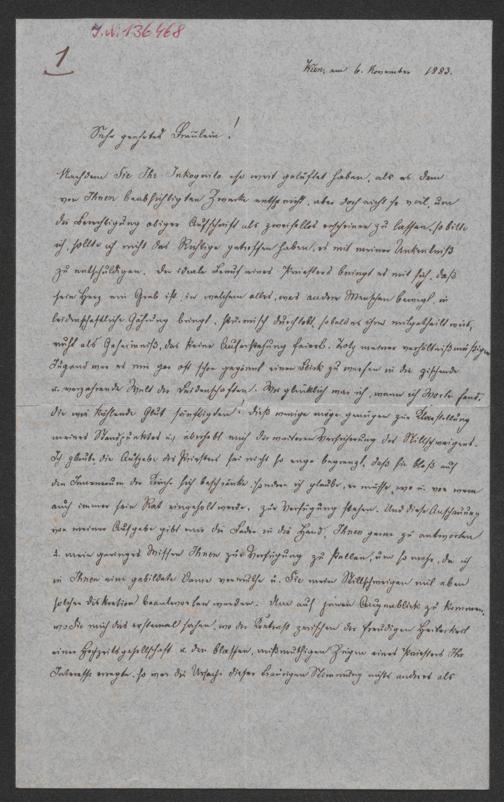 I.N. 136468
1
Wien, am 6. November 1883.
Sehr geehrtes Fräulein!
Nachdem Sie Ihr Inkognito so weit gelüftet haben, als es dem
von Ihnen beabsichtigten Zwecke entspricht, aber doch nicht so viel, um
die Berechtigung obiger Aufschrift als zweifellos erscheinen zu lassen, so bitte
ich, sollte ich nicht das Richtige getroffen haben, es mit meiner Unkenntniß
zu entschuldigen. Der ideale Beruf eines Priesters bringt es mit sich, daß
sein Herz ein Grab ist, in welchem alles, was andere Menschen bewegt, in
leidenschaftliche Gährung bringt, stürmisch durchtobt, sobald es ihm mitgetheilt wird,
ruht als Geheimniß, das keine Auferstehung feiert. Trotz meiner verhältnißmäßigen
Jugend war es mir gar oft schon gegönnt einen Blick zu werfen in die zischende
u. verzehrende Welt der Leidenschaften. Wie glücklich war ich, wenn ich Worte fand,
die wie kühlende Glut sänftigten! Dieß wenige möge genügen zur Klarstellung
meines Standpunktes u. überhebt mich der weiteren Versicherung des Stillschweigens.
Ich glaube die Aufgabe des Priesters sei nicht so enge begrenzt, daß sie bloß auf
den Innenraum der Kirche sich beschränke, sondern ich glaube, er müsse, wo u. von wem
auch immer sein Rat eingeholt werde, zur Verfügung stehen. Und diese Anschauung
von meiner Aufgabe gibt mir die Feder in die Hand, Ihnen gerne zu antworten
u. mein geringes Wissen Ihnen zur Verfügung zu stellen, um so mehr, da ich
in Ihnen eine gebildete Dame vermuthe u. Sie mein Stillschweigen mit eben
solcher Diskretion beantworten werden. Um auf jenen Augenblick zu kommen,
wo Sie mich das erstemal sahen, wo der Kontrast zwischen der freudigen Heiterkeit
einer Hochzeitsgesellschaft u. den blassen, mißmuthigen Zügen eines Priesters Ihr
Interesse erregte, so war die Ursache dieser traurigen Stimmung nichts anders als